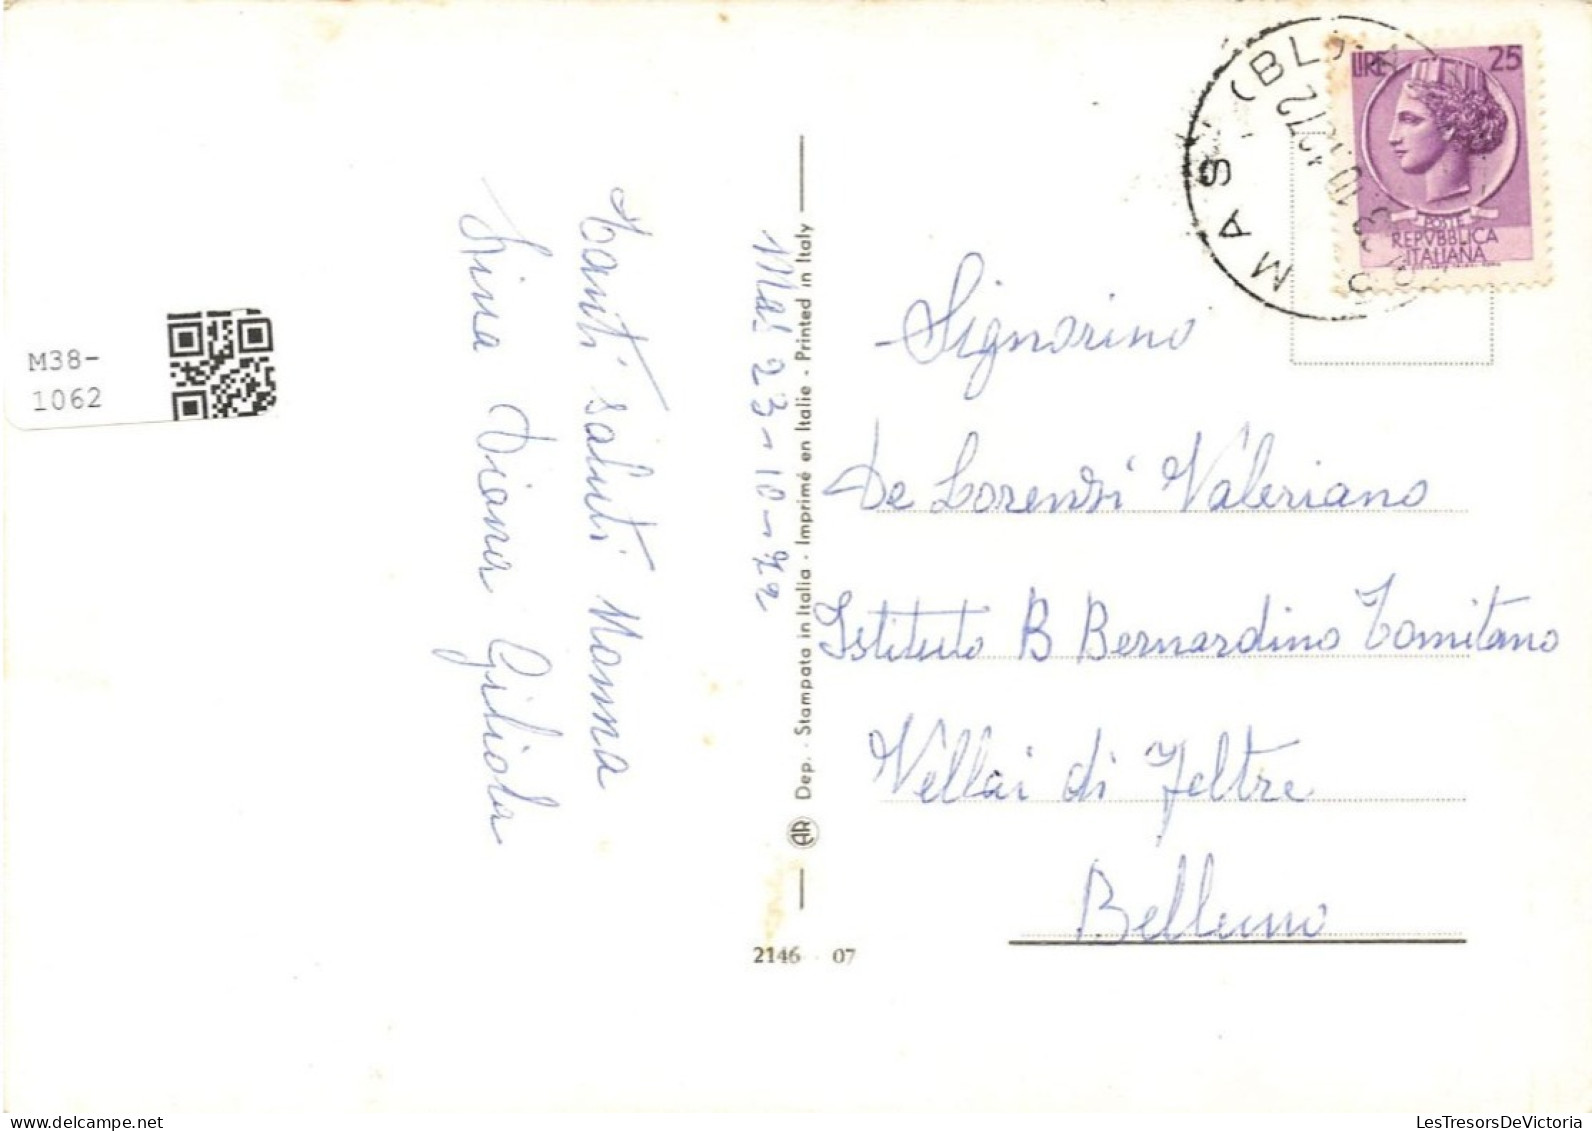 M38-
1062
Mas 23-10-72
Tanti saluti Mamma
Lina Diana Gigliola
AR Dep. - Stampata in Italia - Imprimé en Italie - Printed in Italy
2146 07
MAS (BL)
23.10
1972
LIRE 25
POSTE
REPVBBLICA
ITALIANA
Signorino
De Lorenzi Valeriano
Istituto B Bernardino Tomitano
Vellai di Feltre
Belluno
LesTresorsDeVictoria